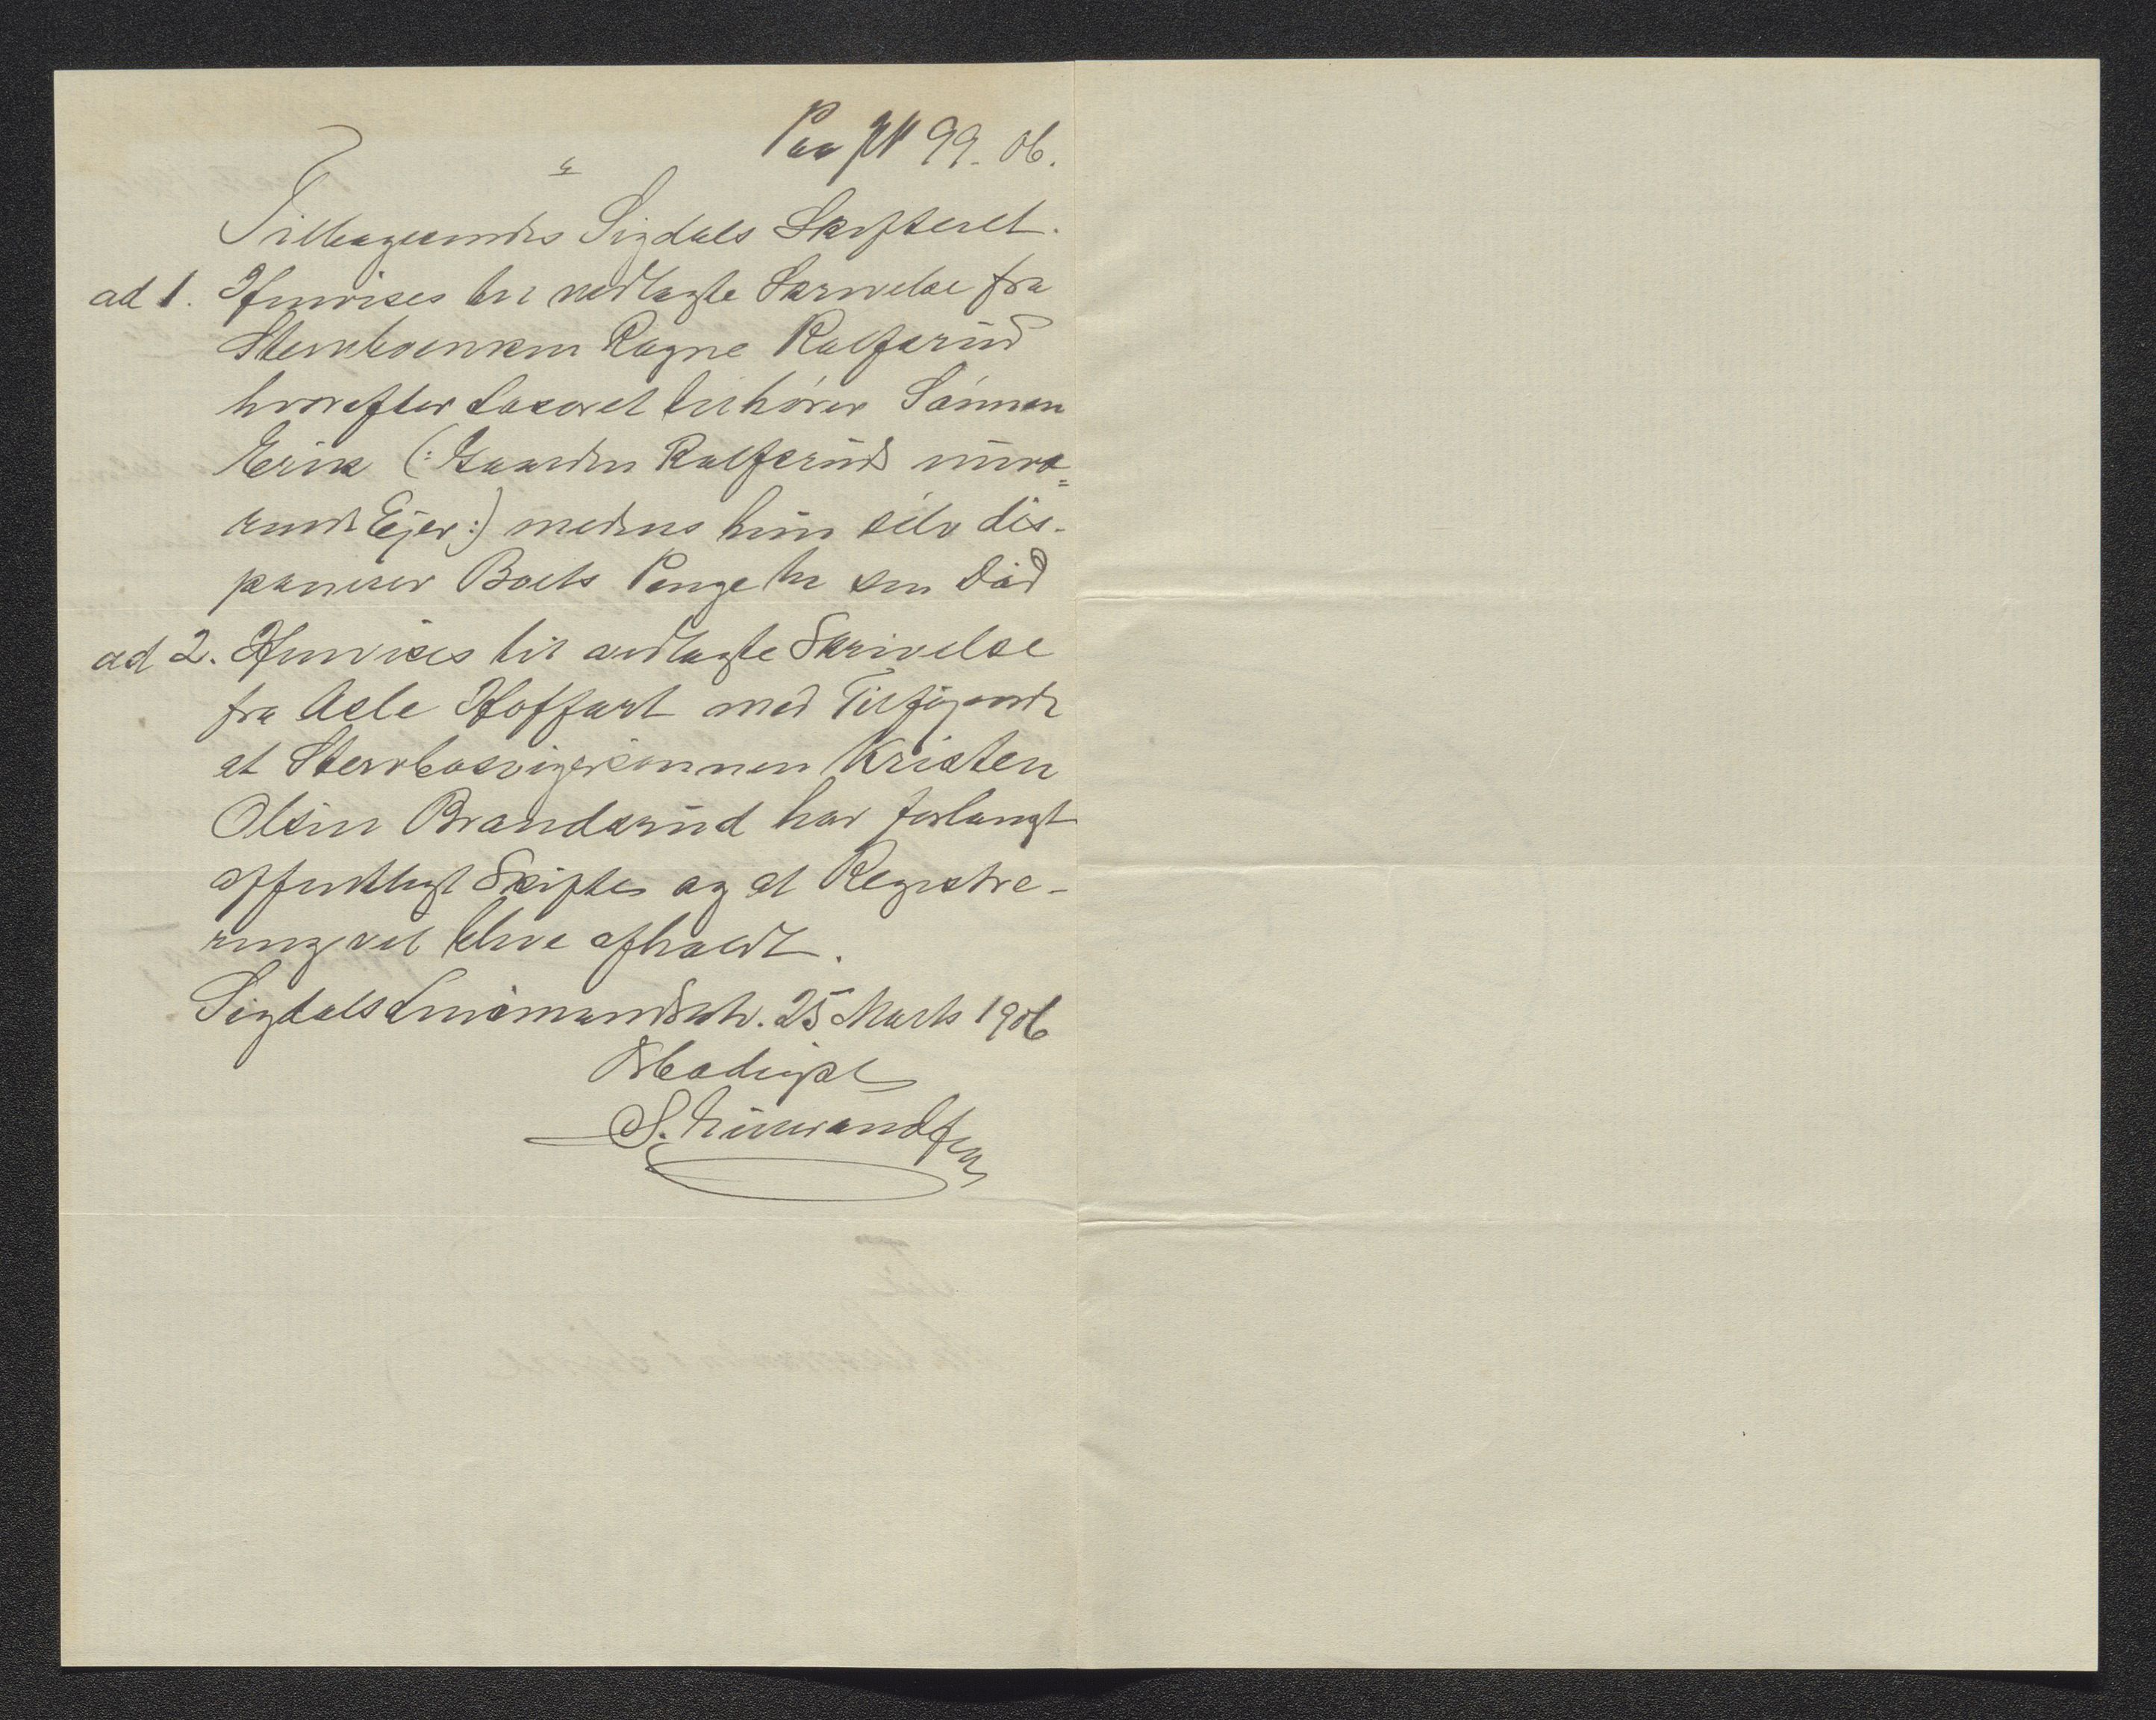 Paa JN 99. 06.
Tilbagesendes Sigdals Skifteret.
ad 1. Henvises til vedlagte Skrivelse fra
Stervboenken Ragne Kalfsrud
hvorefter Løsøret tilhører Sønnen
Erik (: Gaarden Kalfsruds nuvæ=
rende Ejer :) medens hun selv dis-
ponerer Boets Penge til sin Død
ad 2. Henvises til vedlagte Skrivelse
fra Asle Hoffart med Tilføjende
at Stervbosvigersønnen Kristen
Olsen Brandsrud har forlangt
offentligt Skifte og at Registre-
ring vil blive afholdt.
Sigdals Lensmandsktr. 25 Marts 1906
Ærbødigst
S.